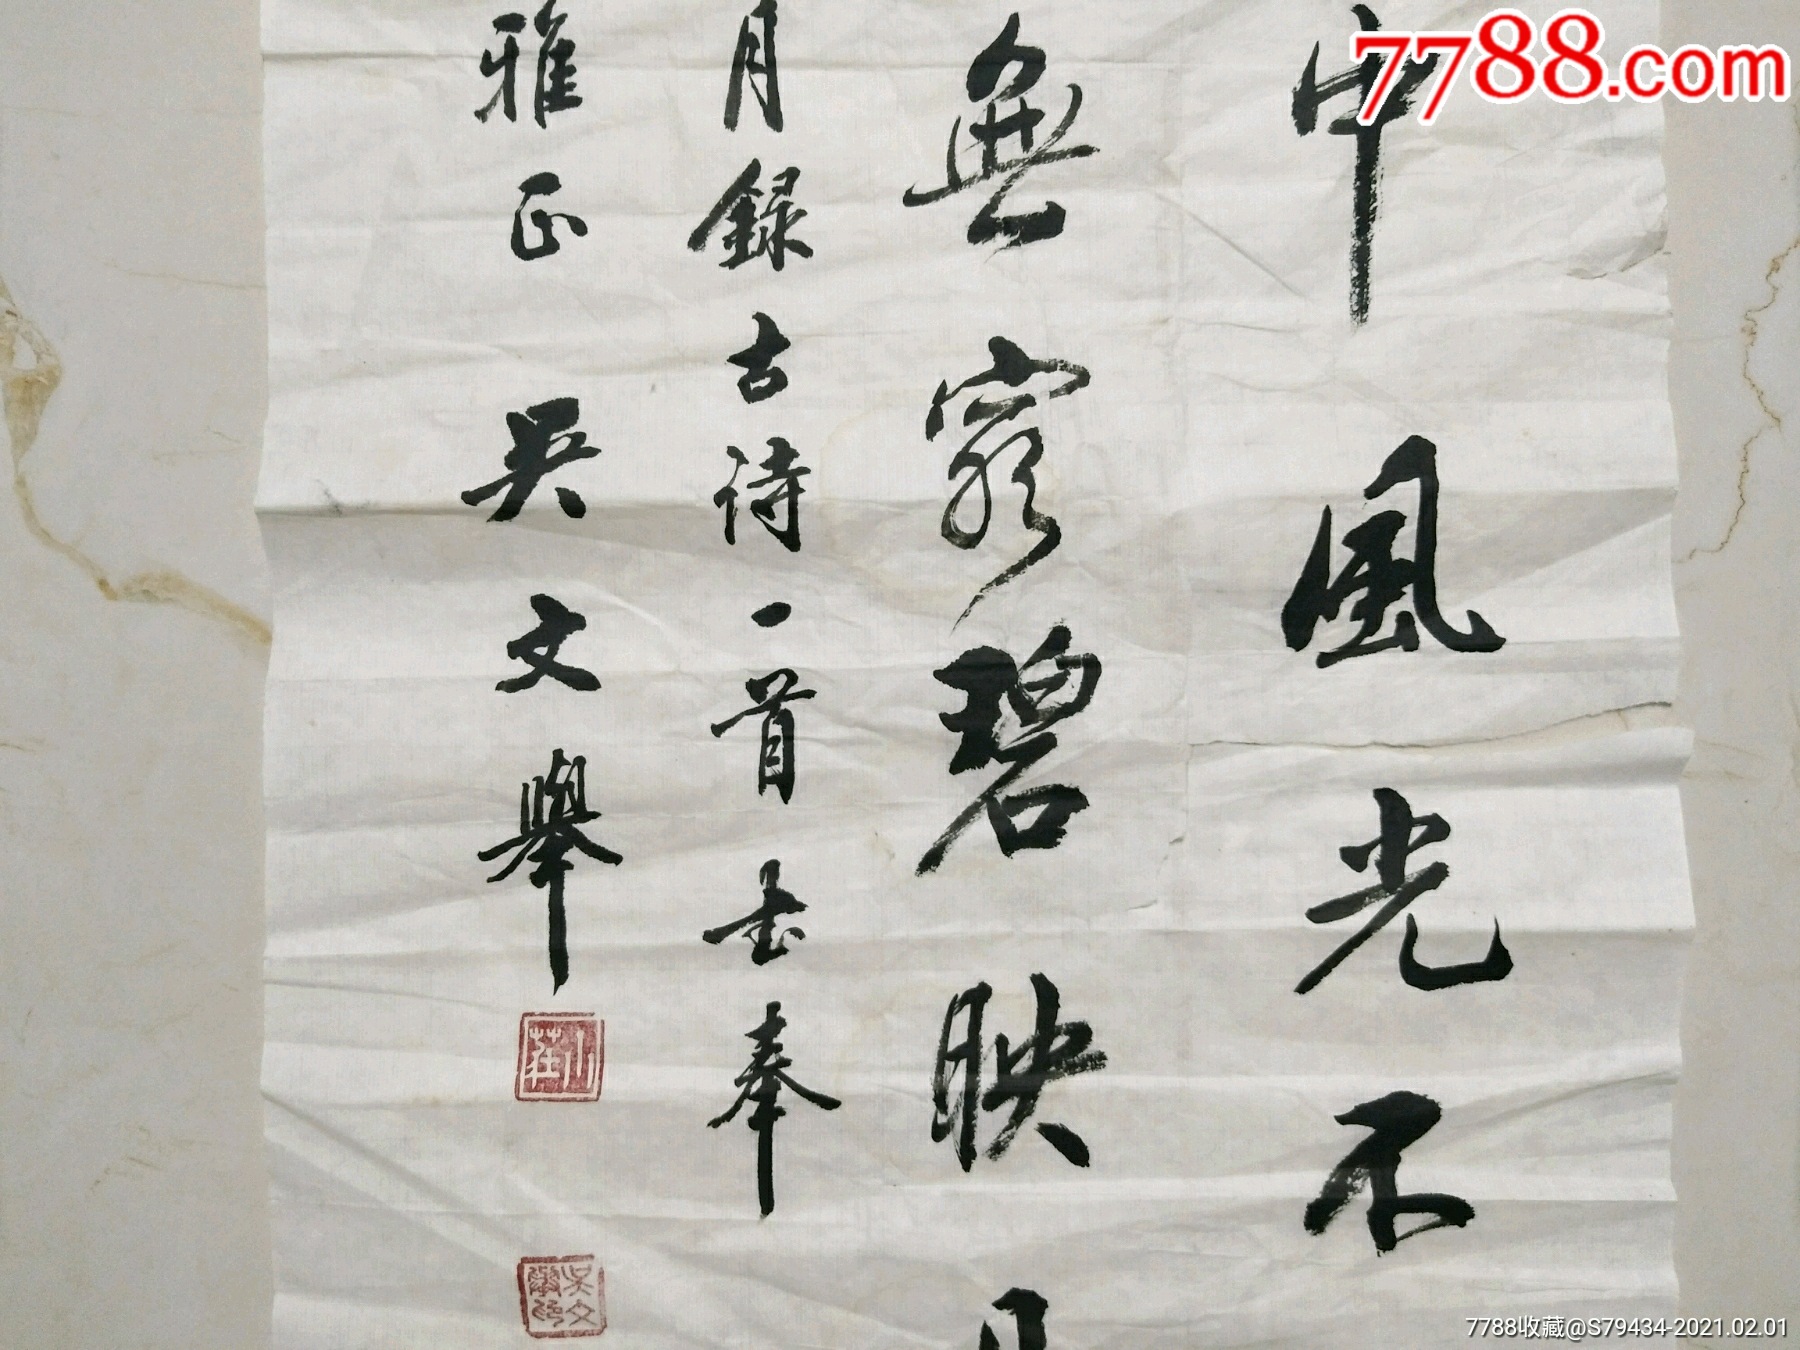 中風光不
無窮碧映日
月録古诗一首书奉
雅正 吴文舉
吴文舉印
7788.com
7788收藏@S79434-2021.02.01